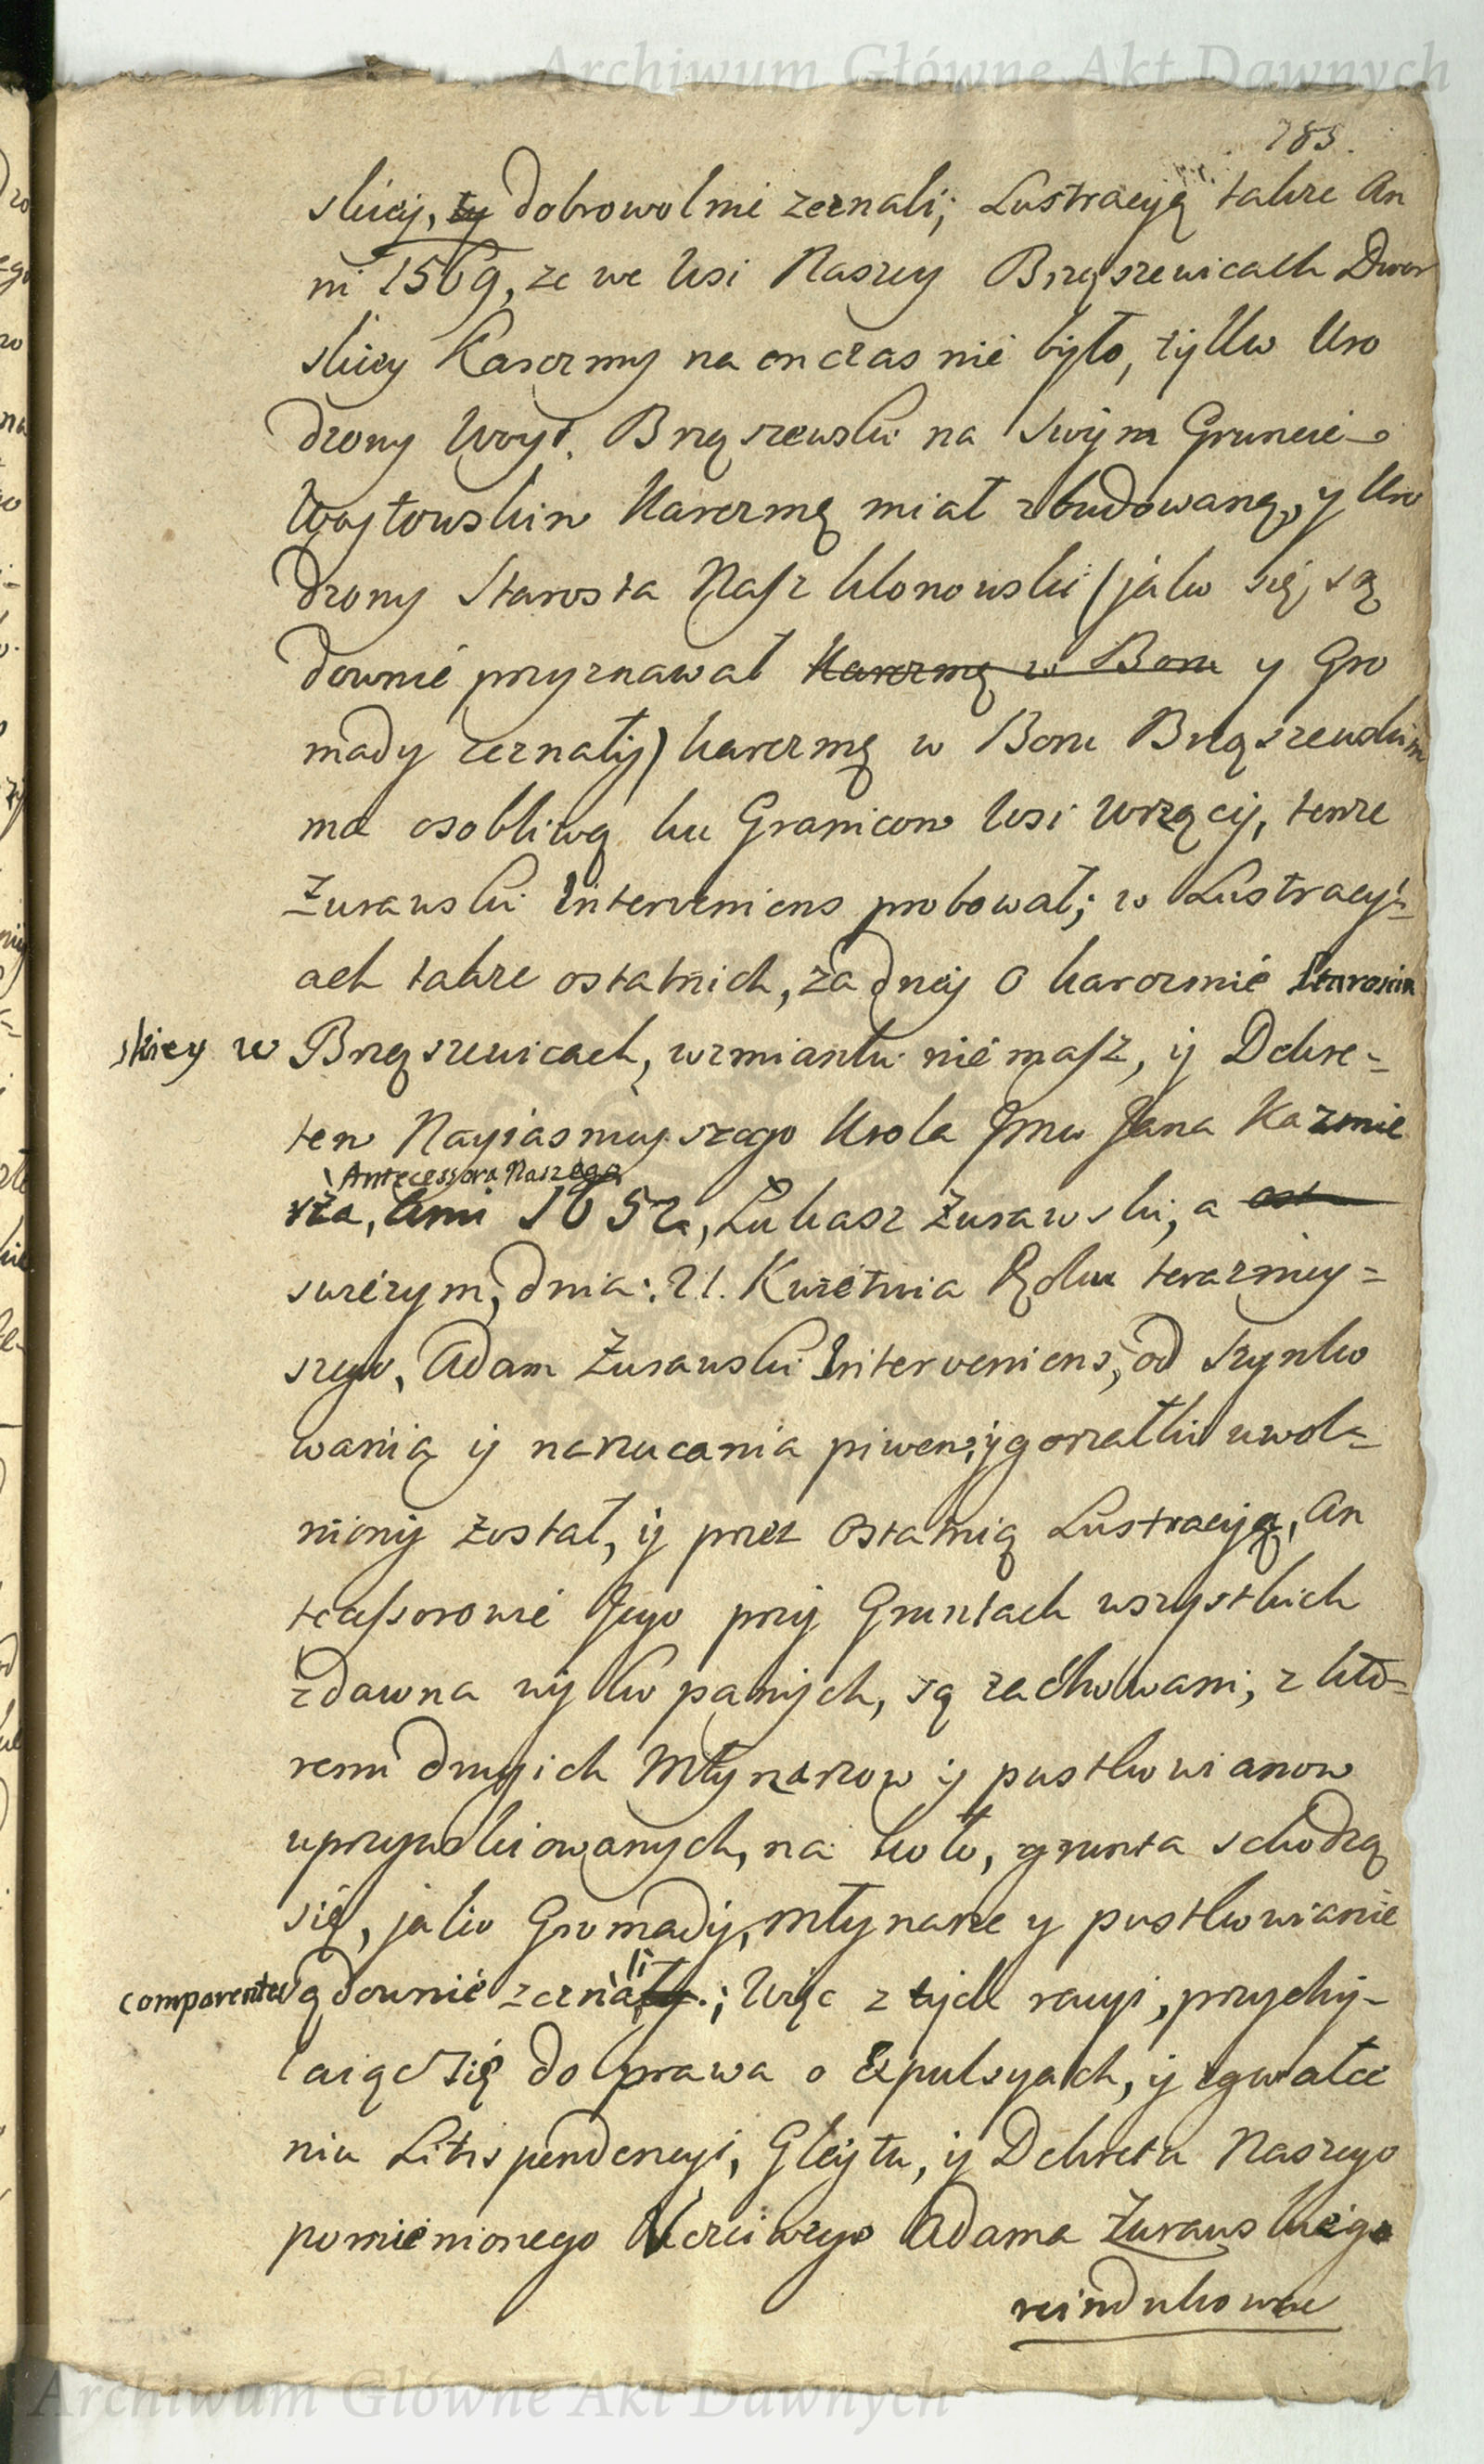 Archiwum Główne Akt Dawnych
783.
skiey, ty dobrowolnie zeznali; Lustracyą także An
ni 1569, że we wsi Naszey Brząszewicach Dwor
skiey Karczmy na on czas nie było, tylko Uro
dzony Woyt. Brząszewski na swym Gruncie
Woytowskim Karczmę miał zbudowaną, y Uro
dzony Starosta Nasz Klonowski (jako się są
downie przyznawał Karczmę w Boru y Gro
mady zeznały) karczmę w Boru Brząszewskim
ma osobliwą ku Granicom wsi Wrzącij, tenże
Żurawski Interveniens probował; w Lustracyi=
ach także ostatnich, żadnej o karczmie Starościń
skiey w Brząszewicach, wzmianki nie masz, ij Dekre=
tem Nayiasnieyszego Krola Jmci Jana Kazmie
Antecessora Naszego
rza, Anni 1652, Łukasz Żurawski, a ost
swiezym, dnia: 21. Kwietnia Roku teraznieij=
szego, Adam Żurawski Interveniens, od szynko
wania ij narzucania piwem, ij gorzałki uwol=
nionij został, ij przez ostatnią Lustracyją, An
tecessorowie Jego przij Gruntach wszystkich
zdawna wijkopanijch, są zachowani, z któ=
remi drugich Młynarzow ij pustkowianow
uprzywileiowanych, na koło, grunta schodzą
się, jako Gromadij, Młynarze y pustkowianie
comparentes sądownie zeznały li; Więc z tijch racyi, przychij=
laiąc się do prawa o Expulsyach, ij zgwałce
niu Litispendencyi, Gleijtu, ij Dekretu Naszego
pomienionego Uczciwego Adama Żurawskiego
reindukowac
Archiwum Główne Akt Dawnych